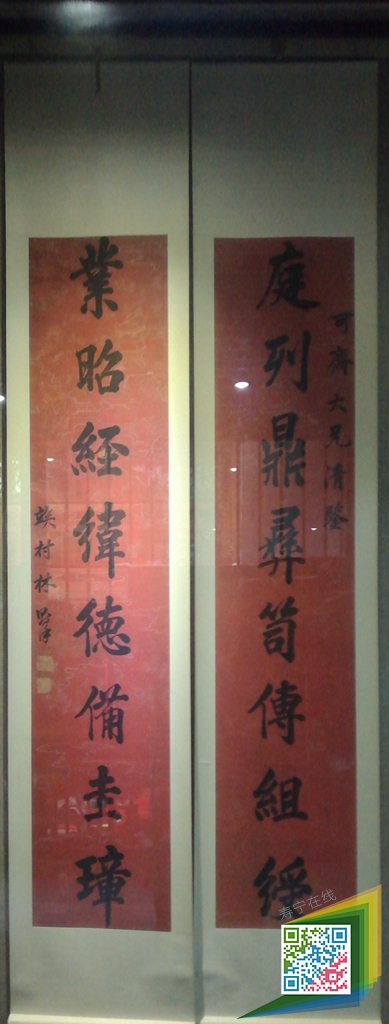 可齋大兄清鑒
庭列鼎彝笥傳組綬
業昭經緯德備圭璋
竢村林
寿宁在线